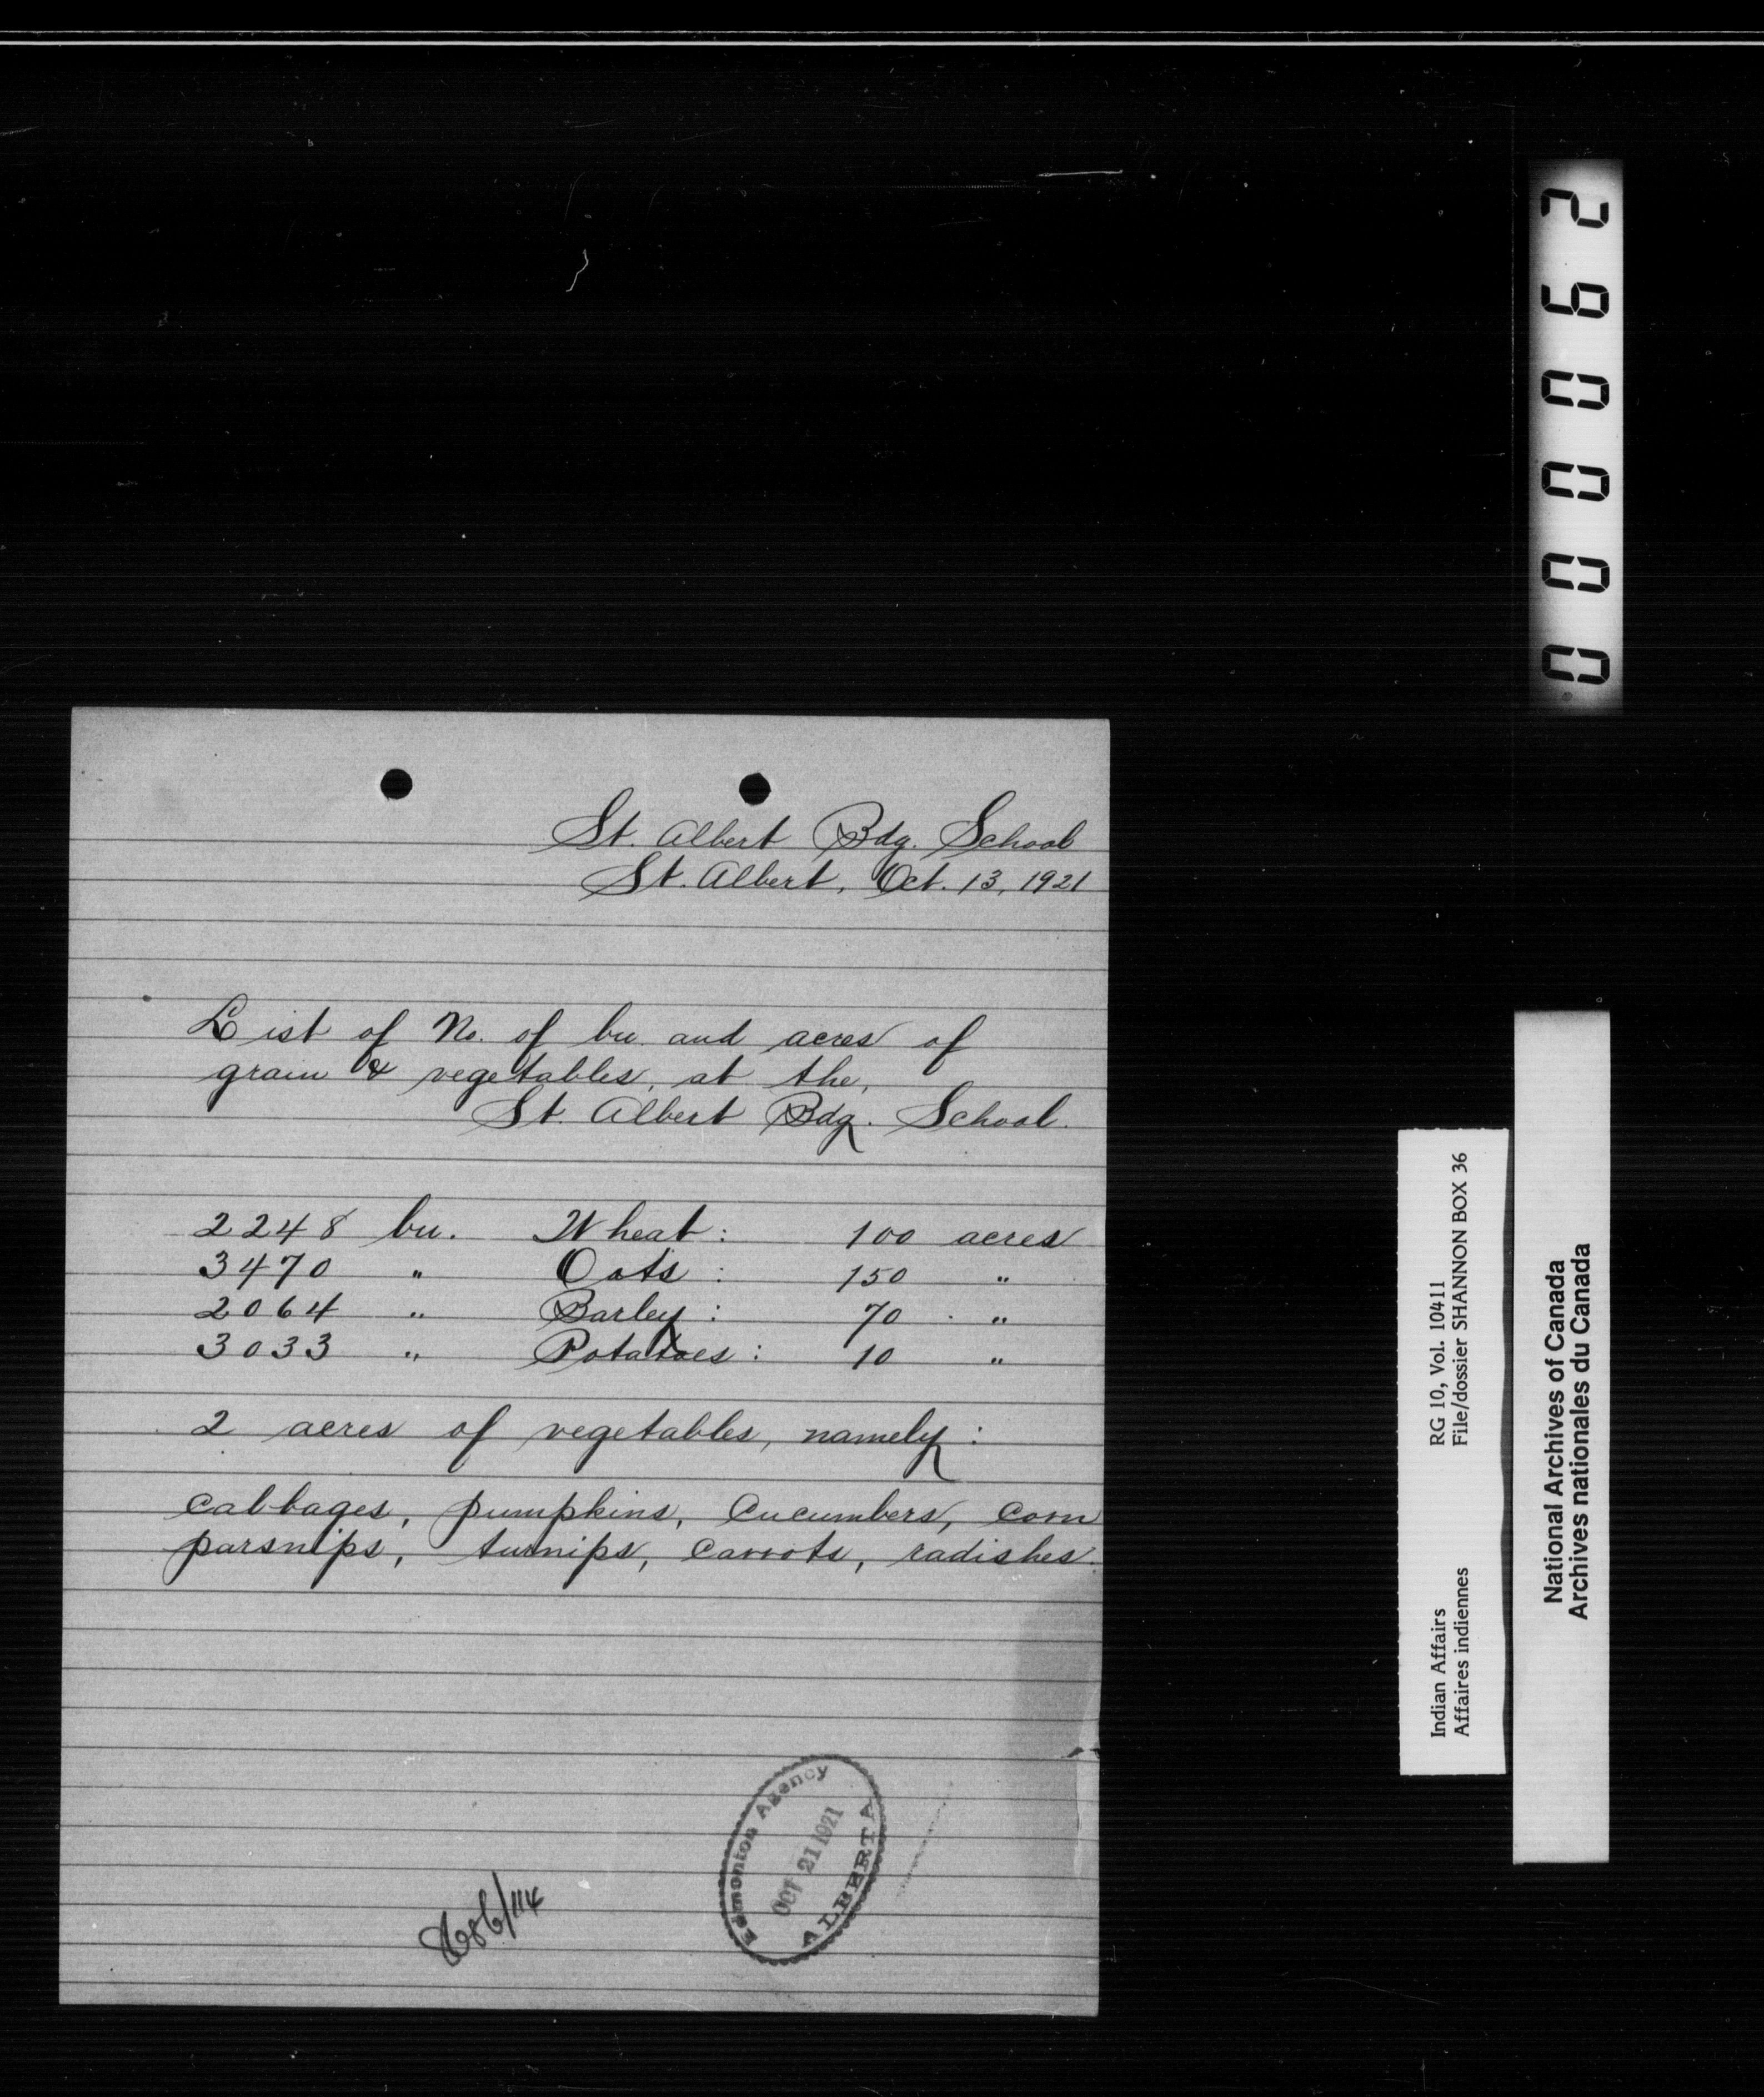 St. Albert Bdg. School
St. Albert, Oct. 13, 1921
List of No. of bu. and acres of
grain & vegetables, at the,
St. Albert Bdg. School.
2248 bu. Wheat: 100 acres
3470 " Oats: 150 "
2064 " Barley: 70 "
3033 " Potatoes: 10 "
2 acres of vegetables, namely:
cabbages, pumpkins, cucumbers, corn
parsnips, turnips, carrots, radishes.
Edmonton Agency
OCT 21 1921
ALBERTA
000062
Indian Affairs RG 10, Vol. 10411
Affaires indiennes File/dossier SHANNON BOX 36
National Archives of Canada
Archives nationales du Canada